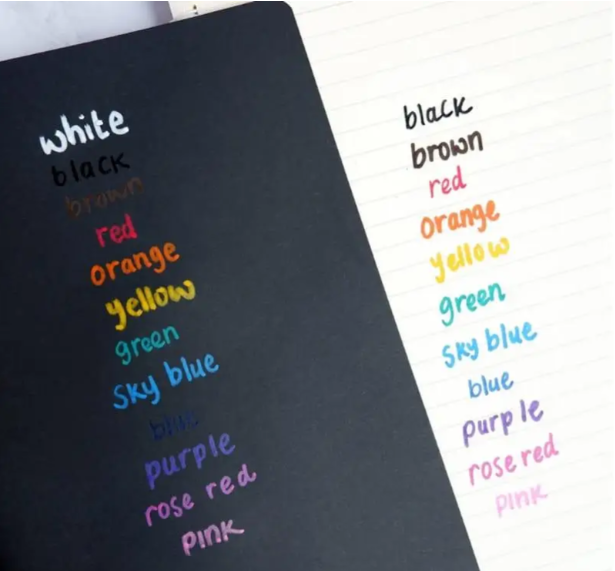 white
black
brown
red
orange
yellow
green
sky blue
blue
purple
rose red
pink
black
brown
red
orange
yellow
green
sky blue
blue
purple
rose red
pink